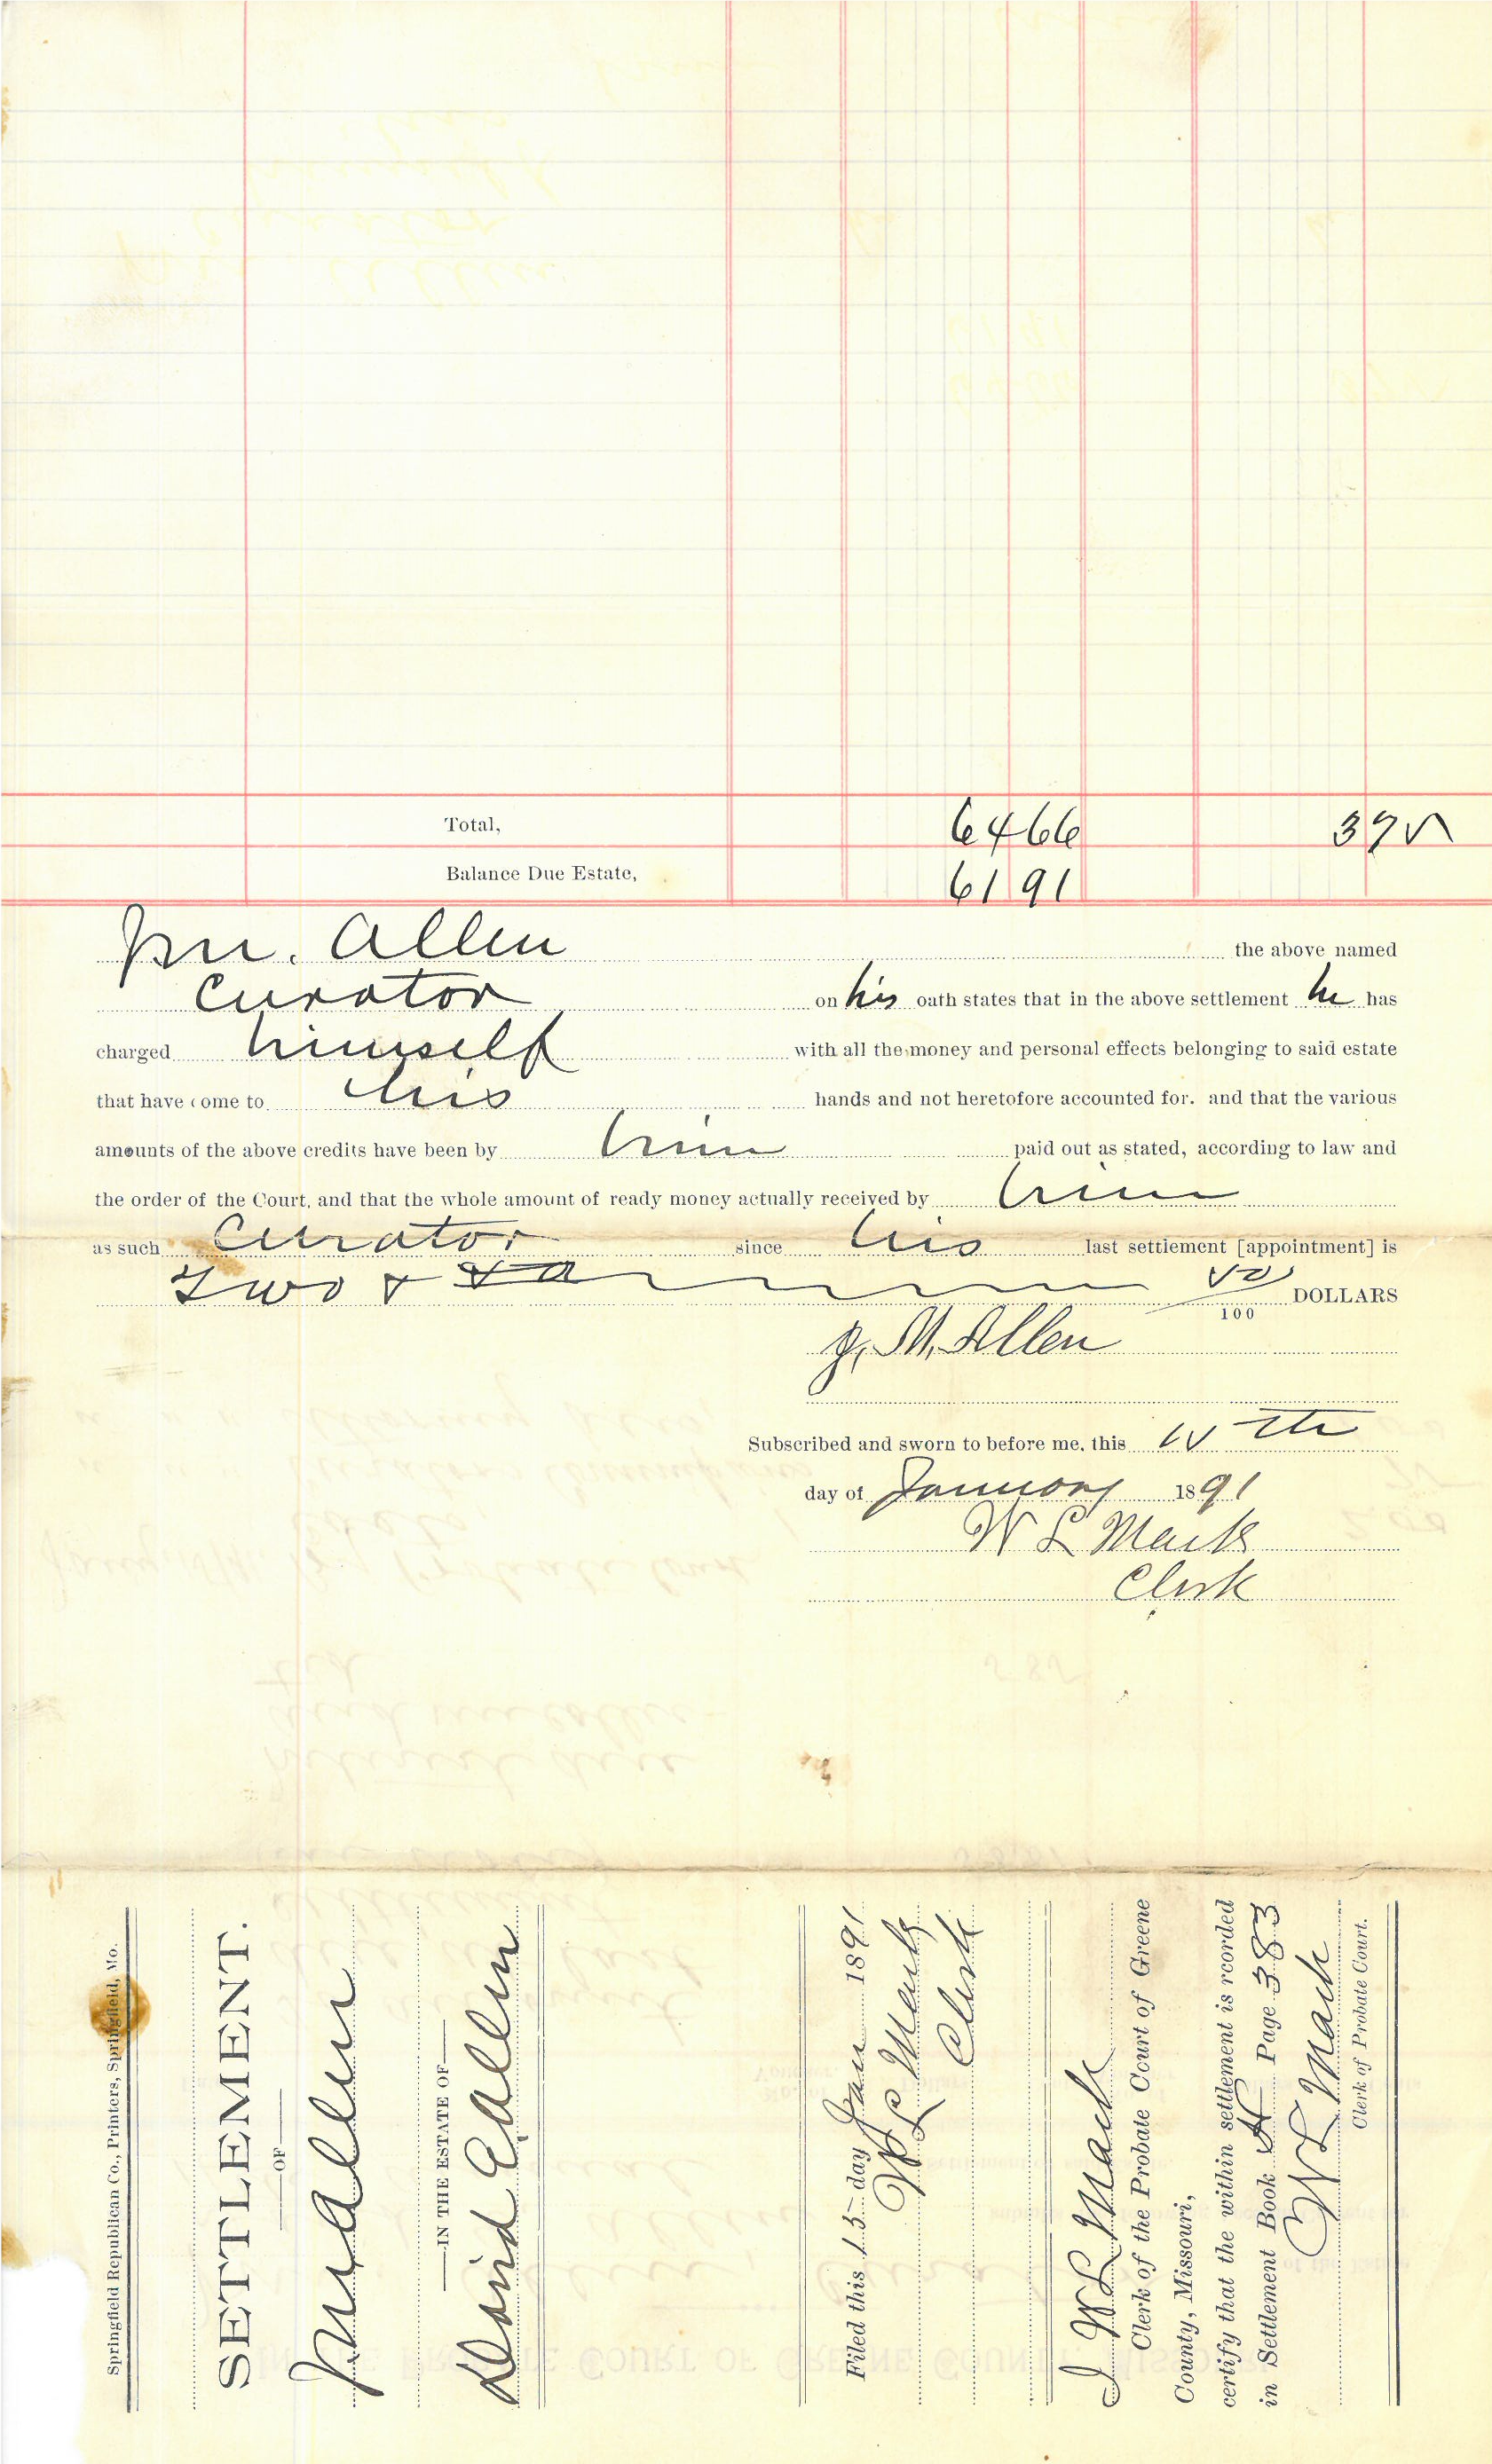 Total, 6466 375
Balance Due Estate, 6191
J M. Allen the above named
Curator on his oath states that in the above settlement he has
charged himself with all the money and personal effects belonging to said estate
that have come to his hands and not heretofore accounted for. and that the various
amounts of the above credits have been by him paid out as stated, according to law and
the order of the Court, and that the whole amount of ready money actually received by him
as such Curator since his last settlement [appointment] is
Two & 50/100 DOLLARS
J. M. Allen
Subscribed and sworn to before me, this 15th
day of January 1891
W L Mack
Clerk
Springfield Republican Co., Printers, Springfield, Mo.
SETTLEMENT.
OF
J M Allen
IN THE ESTATE OF
David E Allen
Filed this 15 day Jan 1891
W L Mack
Clerk
I W L Mack
Clerk of the Probate Court of Greene
County, Missouri,
certify that the within settlement is recorded
in Settlement Book H Page 383
W L Mack
Clerk of Probate Court.